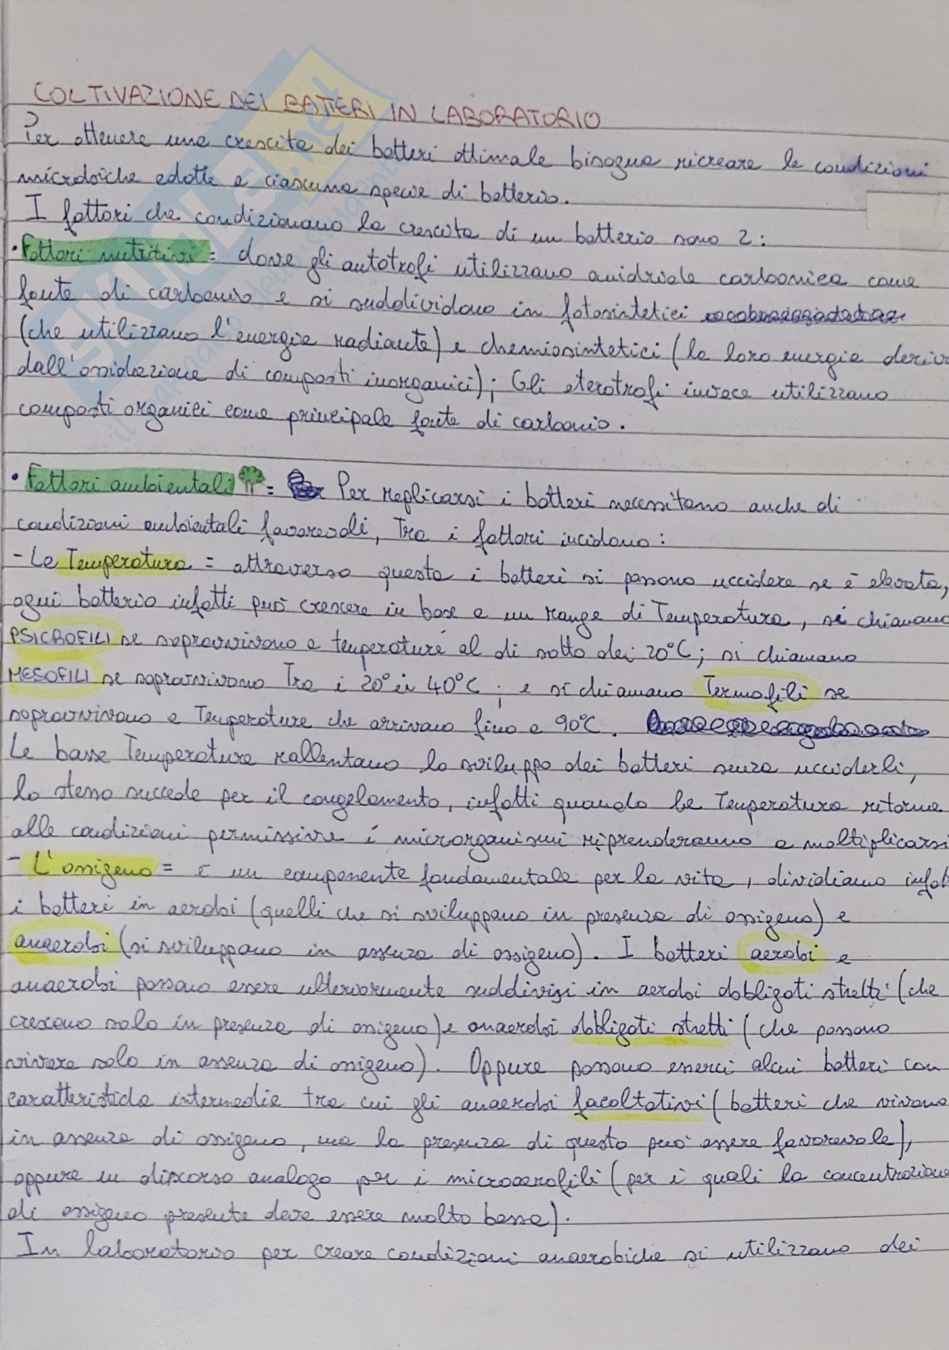 COLTIVAZIONE DEI BATTERI IN LABORATORIO
Per ottenere una crescita dei batteri ottimale bisogna ricreare le condizioni
microbiche adatte a ciascuna specie di batterio.
I fattori che condizionano la crescita di un batterio sono 2:
• Fattori nutritivi = dove gli autotrofi utilizzano anidride carbonica come
fonte di carbonio e si suddividono in fotosintetici
(che utilizzano l'energia radiante) e chemiosintetici (la loro energia deriv
dall'ossidazione di composti inorganici); Gli eterotrofi invece utilizzano
composti organici come principale fonte di carbonio.
• Fattori ambientali = Per replicarsi i batteri necessitano anche di
condizioni ambientali favorevoli, Tra i fattori incidono:
- La Temperatura = attraverso questa i batteri si possono uccidere se è elevata,
ogni batterio infatti può crescere in base a un range di Temperatura, si chiamano
PSICROFILI se sopravvivono a temperature al di sotto dei 20°C; si chiamano
MESOFILI se sopravvivono Tra i 20° e i 40°C; e si chiamano Termofili se
sopravvivono a Temperature che arrivano fino a 90°C.
Le basse Temperature rallentano lo sviluppo dei batteri senza ucciderli,
lo stesso succede per il congelamento, infatti quando la Temperatura ritorna
alle condizioni permissive i microrganismi riprenderanno a moltiplicarsi
- L'ossigeno = è un componente fondamentale per la vita, dividiamo infat
i batteri in aerobi (quelli che si sviluppano in presenza di ossigeno) e
anaerobi (si sviluppano in assenza di ossigeno). I batteri aerobi e
anaerobi possono essere ulteriormente suddivisi in aerobi obbligati stretti (che
crescono solo in presenza di ossigeno) e anaerobi obbligati stretti (che possono
vivere solo in assenza di ossigeno). Oppure possono esserci alcui batteri con
caratteristiche intermedie tra cui gli anaerobi facoltativi (batteri che vivono
in assenza di ossigeno, ma la presenza di questo può essere favorevole),
oppure un discorso analogo per i microaerofili (per i quali la concentrazione
di ossigeno presente deve essere molto bassa).
In laboratorio per creare condizioni anaerobiche si utilizzano dei